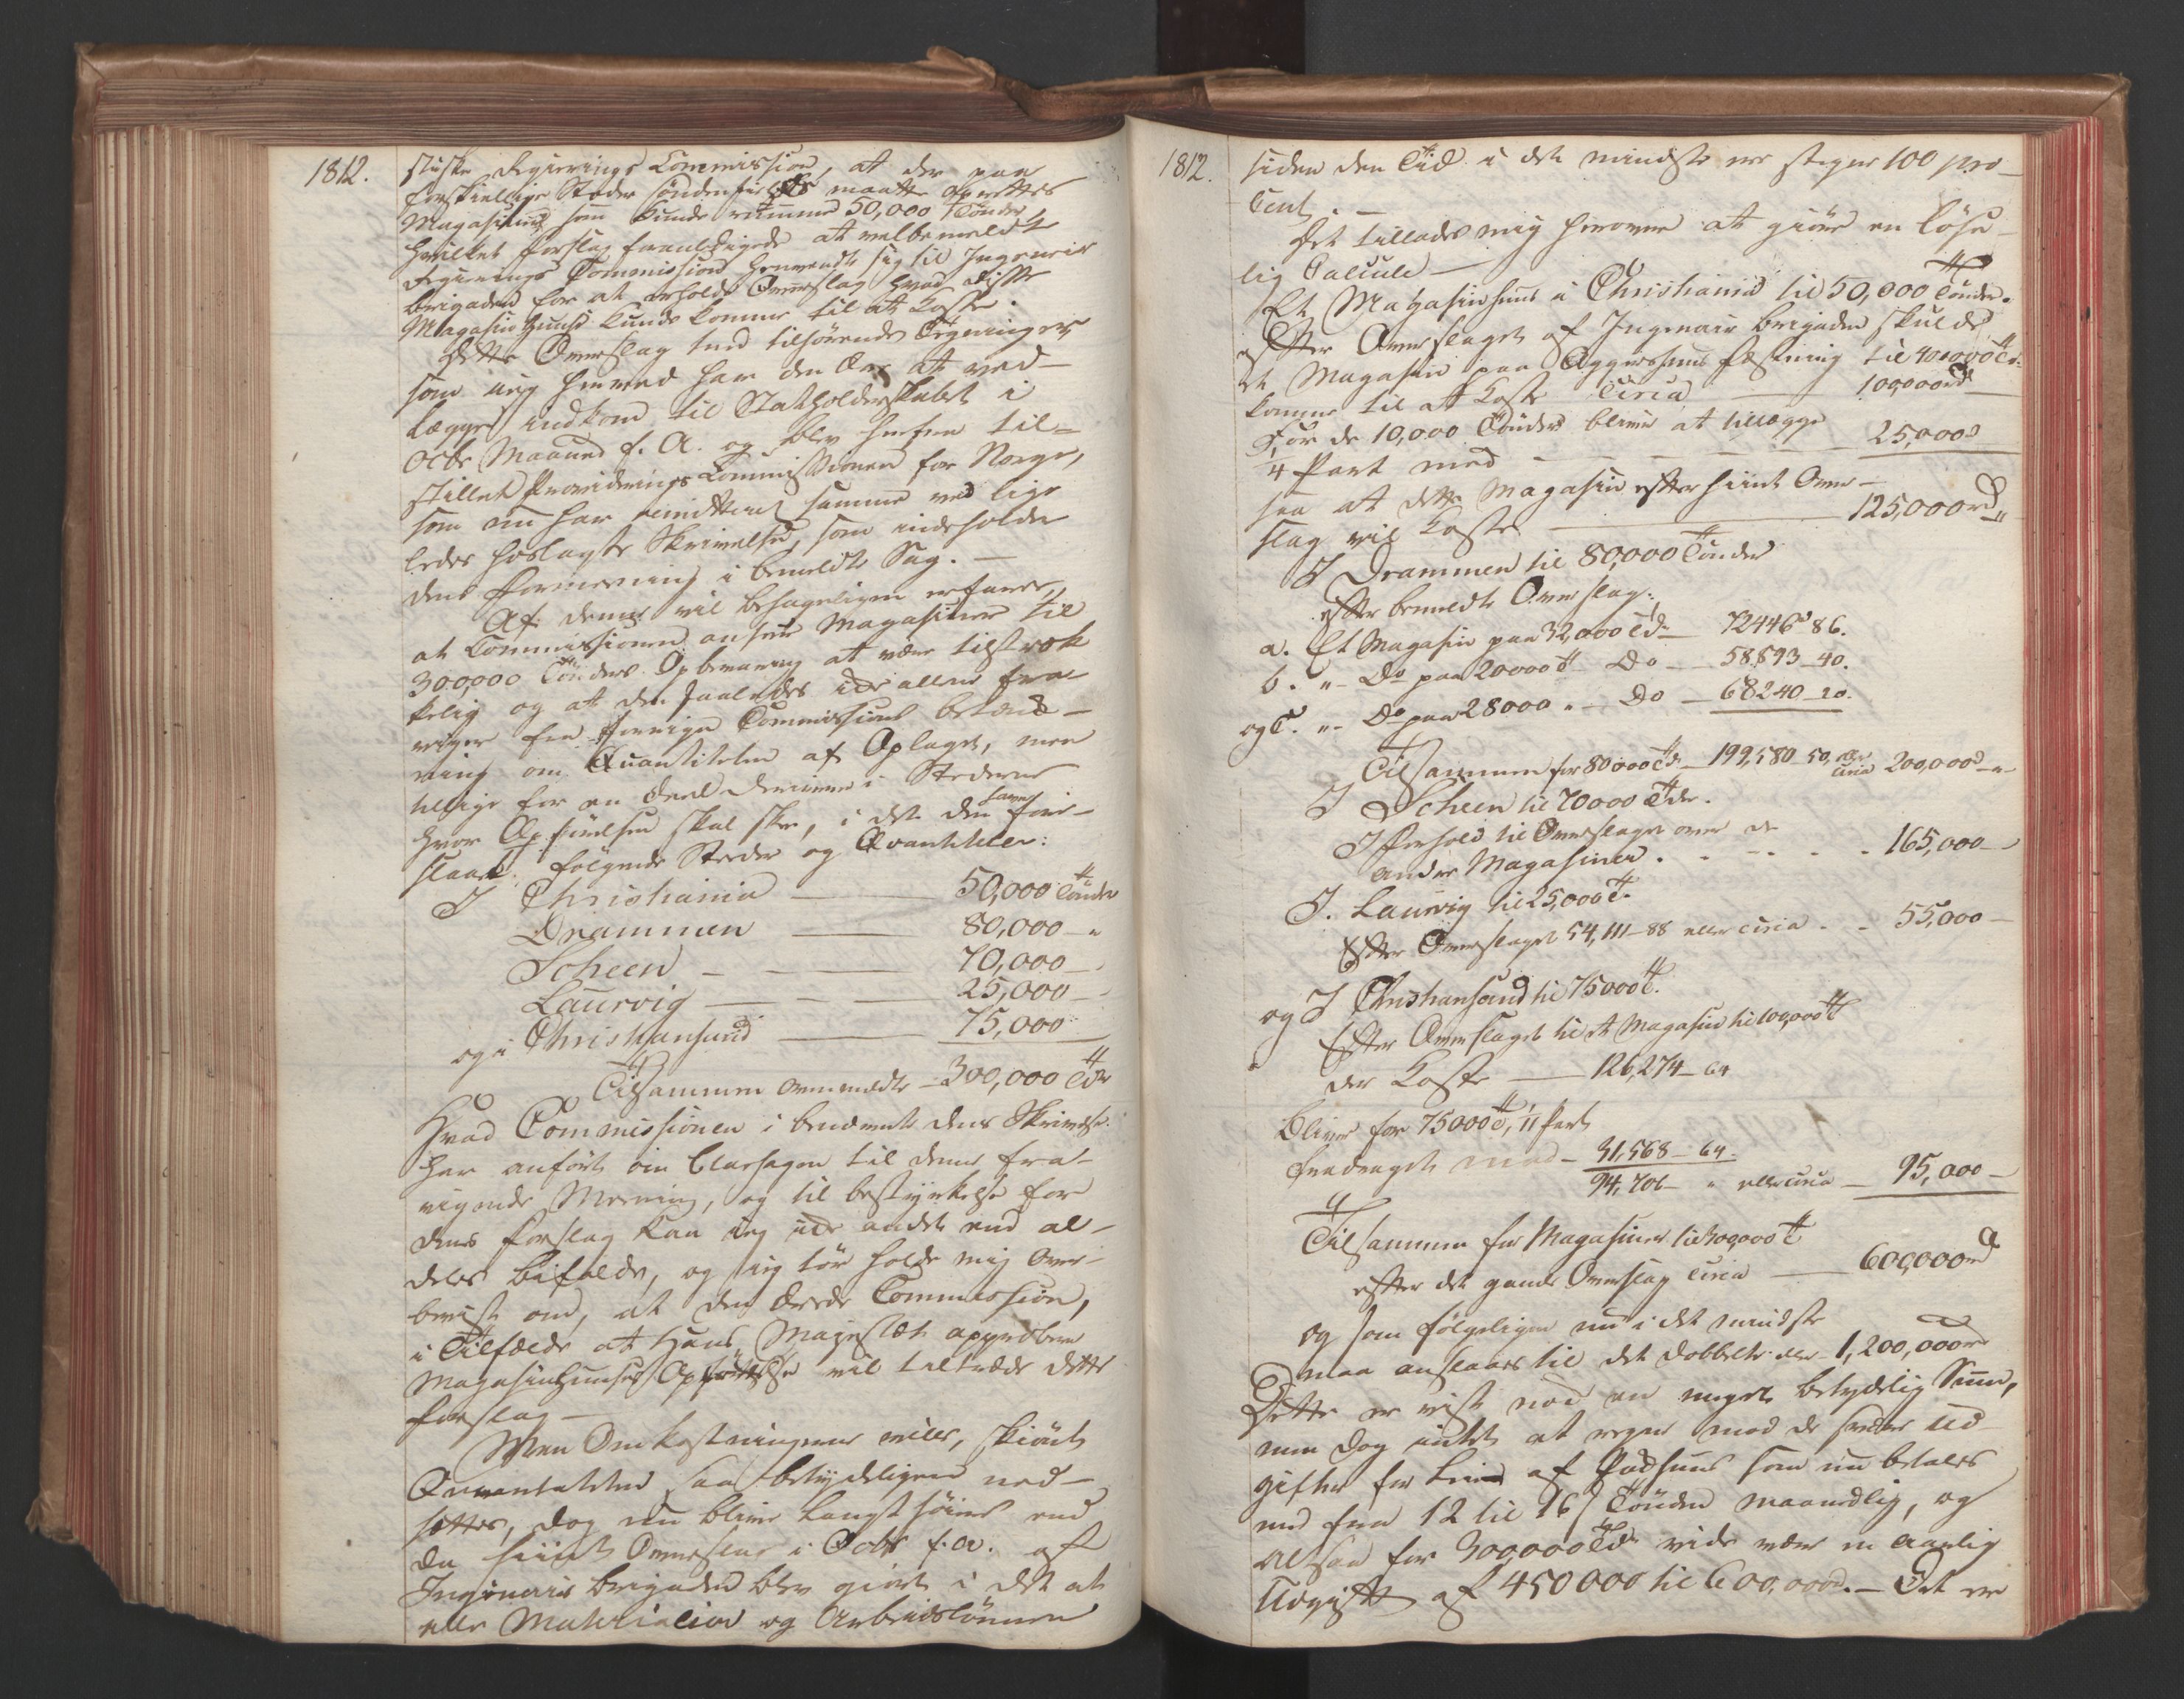 1812.
stiske Regierings Commission, at der paa
forskiellige Steder søndenfields maatte oprettes
Magasiner som kunde rumme 50,000 Tønder
hvilket forslag foranledigede at velbemeldte
Regierings Commission henvendte sig til Ingenieur
brigaden for at erholde Overslag hvad disse
Magasin Huuse kunde komme til at koste.
Dette Overslag med tilhørende Tegninger
som jeg herved har den Ære at ved-
lægge indkom til Statholderskabet i
Octbr Maaned f. A. og blev herfra til-
stillet Provideringscommissionen for Norge,
som nu har remitteret samme med lige-
ledes hoslagte Skrivelse, som indeholder
dens formening i bemeldte Sag. —
Af denne vil behageligen erfares,
at Commissionen anseer Magasiner til
300,000 Tønders Opbevaring at være tilstræk
kelig og at den saaledes ikke allene fra
viger fra forrige Commissions betænk-
ning om Quantiteten af Oplaget, men
tillige for en Deel derimod i Stederne
hvor Opførelsen skal skee, i det den fore-
slaaer følgende Steder og Qvantiteter:
I Christiania — 50,000 Tønder
Drammen — 80,000 — "
Scheen — 70,000 —
Laurvig — 25,000 —
og i Christiansand — 75,000
Tilsammen ovenmeldte — 300,000 Tdr
Hvad Commissionen i benævnte dens Skrivelse
har anført om Aarsagen til dens fra-
vigende Meening, og til bestyrkelse for
dens forslag kan jeg ikke andet end al-
deles bifalde, og jeg tør holde mig over-
beviist om, at den ærede Commission,
i Tilfælde at Hans Majestæt approberer
Magasinhuusets Opførelse vil tiltræde dette
forslag —
Men Omkostningerne ville, skiønt
Qvantiteten saa betydeligen ned-
sættes, dog nu blive langt høiere end
da hiint Overslag i Octbr f. A. af
Ingenieur brigaden blev giort i det at
alle Materialier og Arbeidslønnen
1812.
siden den Tid i det mindste er stegen 100 pro-
Cent. —
Det tillades mig herover at giøre en løse-
lig Calcule —
Et Magasinhuus i Christiania til 50,000 Tønder.
efter Overslaget af Ingenieur brigaden skulde
et Magasin paa Aggershuus fæstning til 40000 Tdr.
komme til at koste circa — 100,000 rd
For de 10,000 Tønder bliver at tillægge
¼ Part med — 25,000
saa at dette Magasin efter hiint Over-
slag vil koste — 125,000 rd "
I Drammen til 80,000 Tønder
efter bemeldte Overslag:
a. Et Magasin paa 32,000 Tdr — 72446 86.
b. " — Do paa 20000 T — Do — 58,893 — 40.
og c. " — Do paa 28000 " — Do — 68240 — 20.
Tilsammen for 80000 Tdr — 199,580 — 50, eller circa 200,000 — "
I Scheen til 70000 Tdr.
I forhold til Overslaget over de
andre Magasiner . — . — . . 165,000 —
I. Laurvig til 25,000 T.
Efter Overslaget 54,111 — 88 eller circa . . 55,000 —
og I Christiansand til 75000 T.
Efter Overslaget til et Magasin til 100,000 T
der koste — 126,274 — 64
bliver for 75000 T, ¼ Part
fradraget med — 31,568 — 64.
94,706 — " eller circa — 95,000 —
Tilsammen for Magasiner til 300,000 T
efter det gamle Overslag circa — 600,000 rd
og som følgeligen nu i det mindste
maa anslaaes til det dobbelte eller 1,200,000 rd
Dette er vist nok en meget betydelig Sum,
men dog intet at regne mod de svære Ud-
gifter for Leie af Pakhuus som nu betales
med fra 12 til 16 ß Tønden maanedlig, og
altsaa for 300,000 Tdr vilde være en aarlig
Udgift af 450000 til 600,000 rd. — Det er